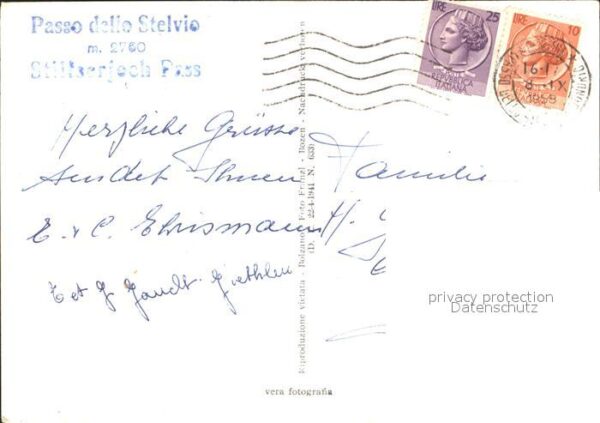 Passo dello Stelvio
m. 2760
Stilfserjoch Pass
LIRE 25
REPUBBLICA
ITALIANA
LIRE 10
16-1
1958
Herzliche Grüsse
sendet Ihnen
E. & C. Ehrismann
E et G
Familie
H.
Riproduzione vietata - Bolzano - Foto Fränzl - Bozen - Nachdruck verboten
(D. 22-4-1941 N. 633)
vera fotografia
privacy protection
Datenschutz